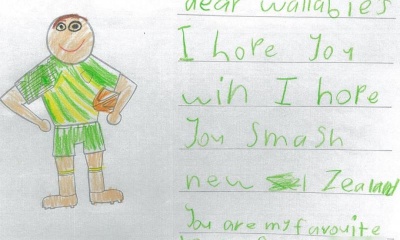 dear wallabies
I hope you
win I hope
You Smash
new Zealand
You are my favouite